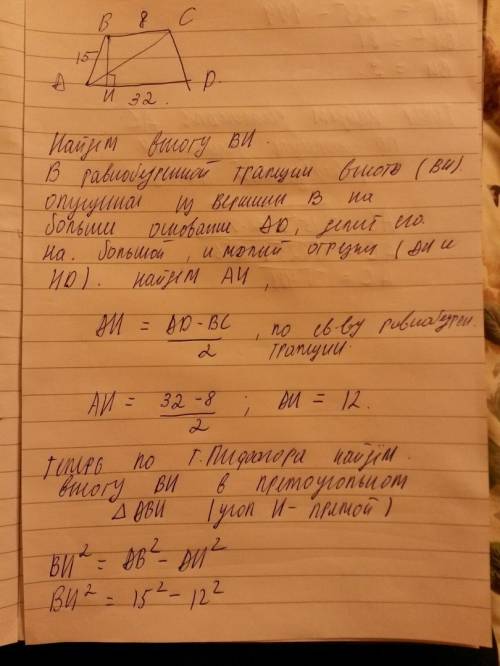 B 8 C
15
A H 32 D
Найдём высоту BH.
В равнобедренной трапции высота (BH).
опущенная из вершины B на
больше основание AD, делит его
на большой, и малый отрезки (AH и
HD). найдём AH,
AH = AD-BC / 2 , по св-ву равнобедрен.
трапции.
AH = 32-8 / 2 ; AH = 12.
Теперь по т. Пифагора найдём
высоту BH в прямоугольном
△ ABH (угол H - прямой)
BH² = AB² - AH²
BH² = 15² - 12²